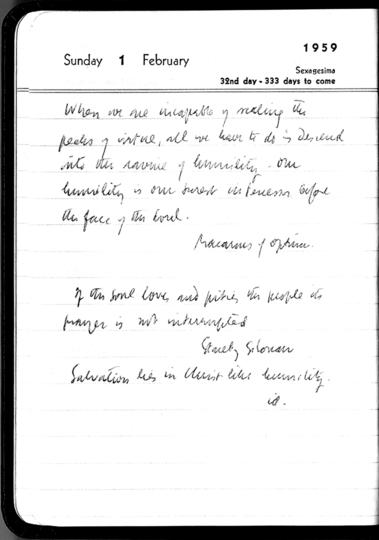 1959
Sunday 1 February
Sexagesima
32nd day - 333 days to come
When we are incapable of scaling the
peaks of virtue, all we have to do is descend
into the ravine of humility. Our
humility is our surest intercessor before
the face of the Lord.
Macarius of Optino.
If the soul loves and pities the people its
prayer is not interrupted
Staretz Silouan
Salvation lies in Christ like humility.
id.